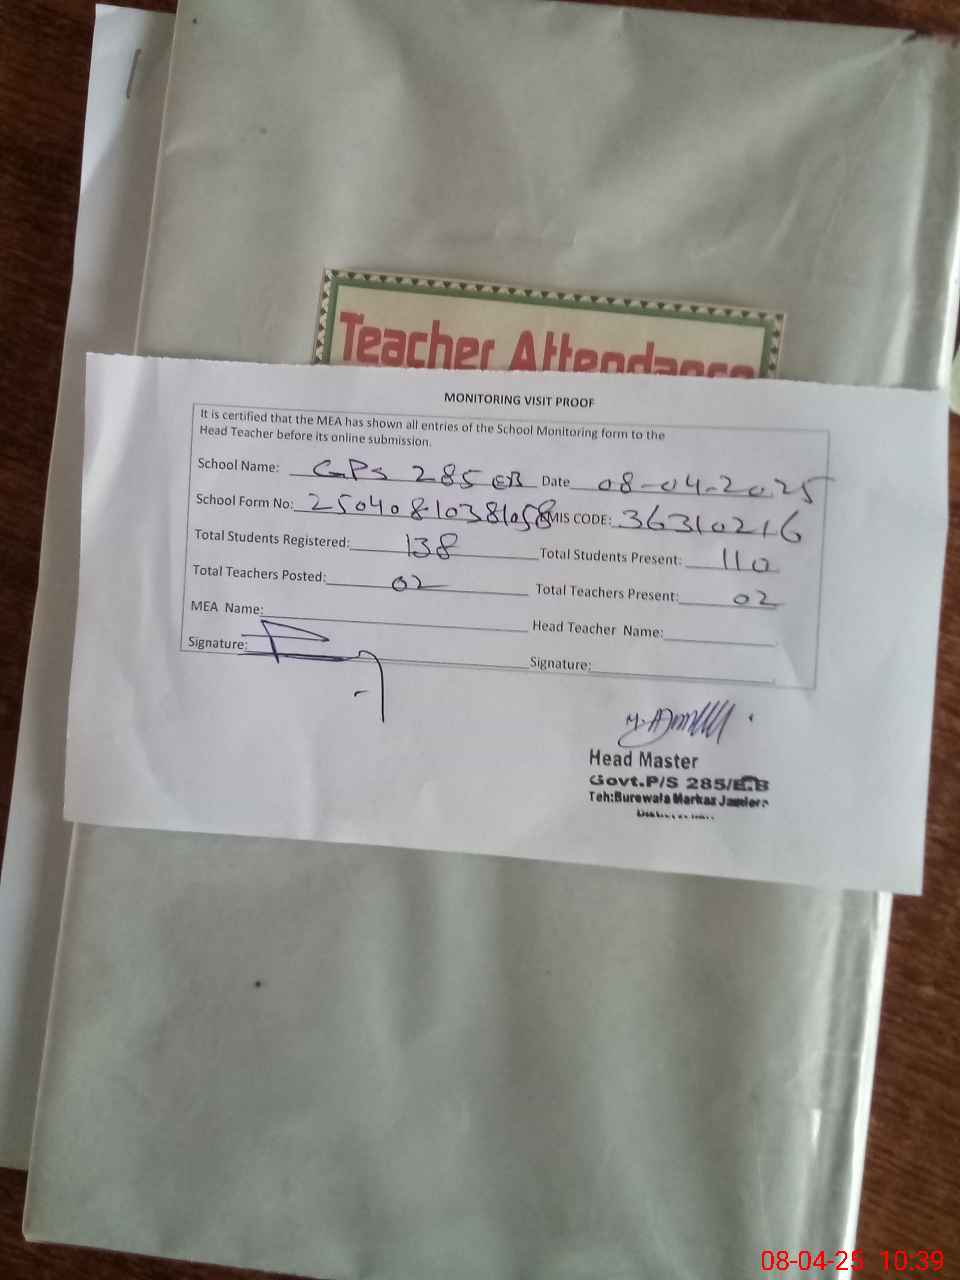 Teacher Attendance
MONITORING VISIT PROOF
It is certified that the MEA has shown all entries of the School Monitoring form to the
Head Teacher before its online submission.
School Name: GPS 285 EB Date 08-04-2025
School Form No: EMIS CODE: 36310216
Total Students Registered: 138 Total Students Present: 110
Total Teachers Posted: 02 Total Teachers Present: 02
MEA Name: Head Teacher Name:
Signature: Signature:
Head Master
Govt.P/S 285/E.B
Teh:Burewala Markaz
08-04-25 10:39